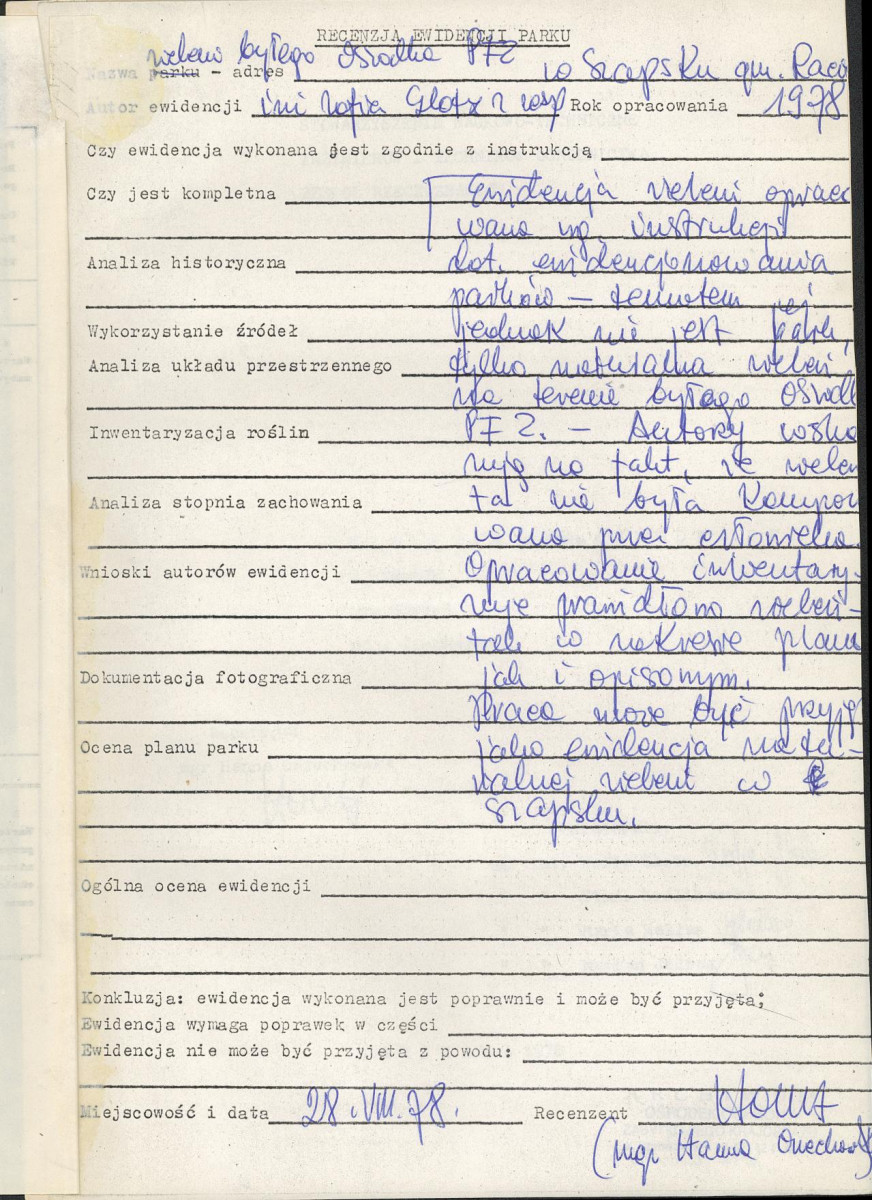 RECENZJA EWIDENCJI PARKU
zieleni byłego Ośrodka PFZ
Nazwa parku - adres w Szapsku gm. Racią
Autor ewidencji inż Zofia Glotz z zesp Rok opracowania 1978
Czy ewidencja wykonana jest zgodnie z instrukcją
Czy jest kompletna Ewidencja zieleni opraco
wana wg instrukcji
Analiza historyczna dot. ewidencjonowania
parków - tematem jej
Wykorzystanie źródeł jednak nie jest park,
Analiza układu przestrzennego tylko naturalna zieleń
na terenie byłego Ośrodk
Inwentaryzacja roślin PFZ. - Autorzy wska
zują na fakt, że zieleń
Analiza stopnia zachowania ta nie była kompono
wana przez człowieka.
Wnioski autorów ewidencji Opracowanie inwentary-
zuje prawidłowo zieleń -
tak w zakresie planu
Dokumentacja fotograficzna jak i opisowym.
Praca może być przyję
Ocena planu parku jako ewidencja natu-
ralnej zieleni w
Szapsku.
Ogólna ocena ewidencji
Konkluzja: ewidencja wykonana jest poprawnie i może być przyjęta;
Ewidencja wymaga poprawek w części
Ewidencja nie może być przyjęta z powodu:
Miejscowość i data 28.VIII.78. Recenzent
(mgr Hanna